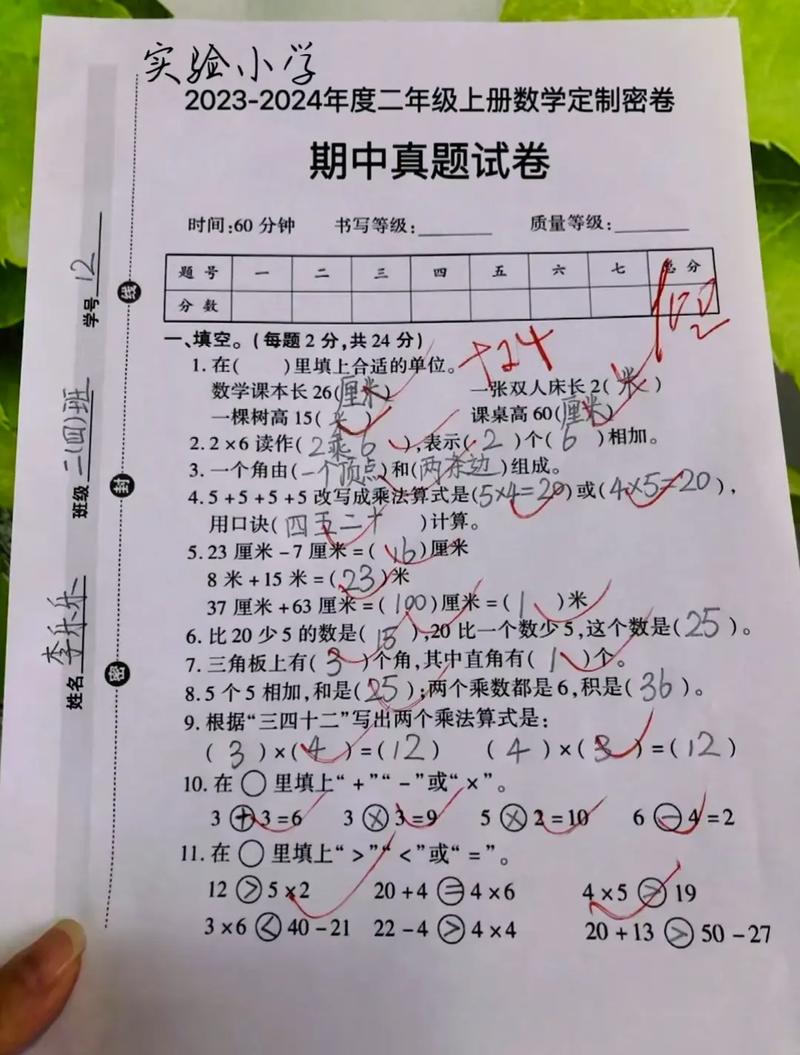 实验小学
2023-2024年度二年级上册数学定制密卷
期中真题试卷
时间:60分钟 书写等级:______ 质量等级:______
题号 一 二 三 四 五 六 七 总分
分数 100
一、填空。(每题2分,共24分) +24
1.在( )里填上合适的单位。
数学课本长26(厘米) 一张双人床长2(米)
一棵树高15(米) 课桌高60(厘米)
2.2×6读作(2乘6),表示(2)个(6)相加。
3.一个角由(一个顶点)和(两条边)组成。
4.5+5+5+5改写成乘法算式是(5×4=20)或(4×5=20),
用口诀(四五二十)计算。
5.23厘米-7厘米=(16)厘米
8米+15米=(23)米
37厘米+63厘米=(100)厘米=(1)米
6.比20少5的数是(15),20比一个数少5,这个数是(25)。
7.三角板上有(3)个角,其中直角有(1)个。
8.5个5相加,和是(25);两个乘数都是6,积是(36)。
9.根据“三四十二”写出两个乘法算式是:
(3)×(4)=(12) (4)×(3)=(12)
10.在○里填上“+”“-”或“×”。
3+3=6 3×3=9 5×2=10 6-4=2
11.在○里填上“>”“<”或“=”。
12>5×2 20+4=4×6 4×5>19
3×6<40-21 22-4>4×4 20+13>50-27
学号 12
班级 二(四)班
姓名 李乐乐
线
封
密